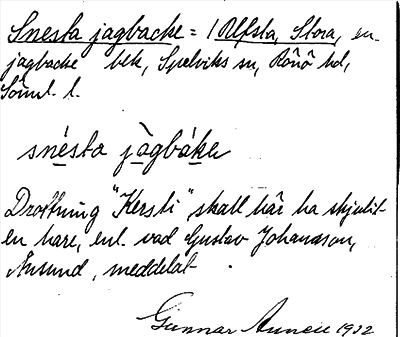 Snesta jagbacke = 1 Ulfsta, Stora, en
jagbacke bek, Spelviks sn, Rönö hd,
Söml. l.
snésta jàgbákẹn
Drottning "Kersti" skall här ha skjutit
en hare, enl. vad Gustav Johansson,
Ånsund, meddelat.
Gunnar 1932